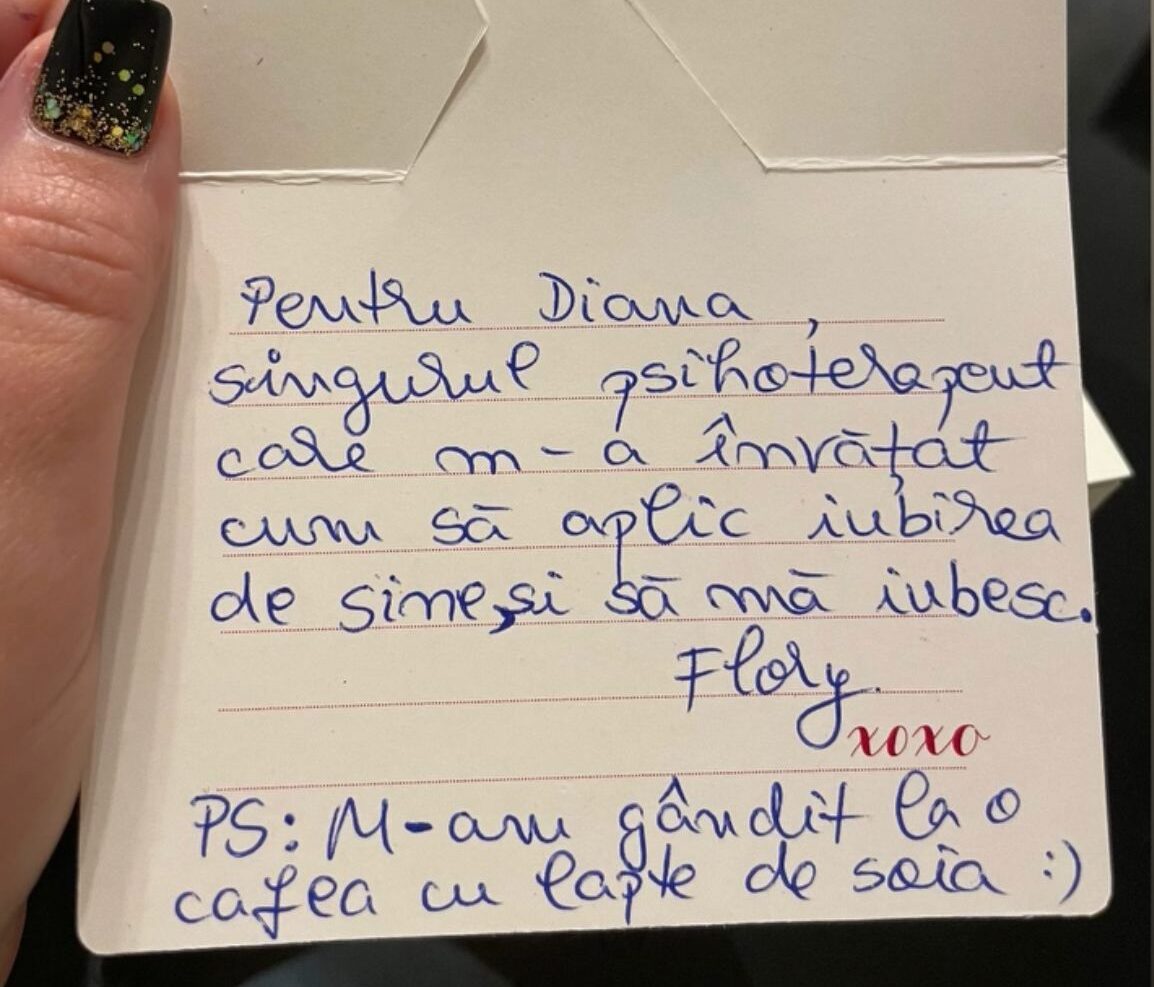 Pentru Diana,
singurul psihoterapeut
care m-a învățat
cum să aplic iubirea
de sine,si să mă iubesc.
Flory.
xoxo
PS: M-am gândit la o
cafea cu lapte de soia :)